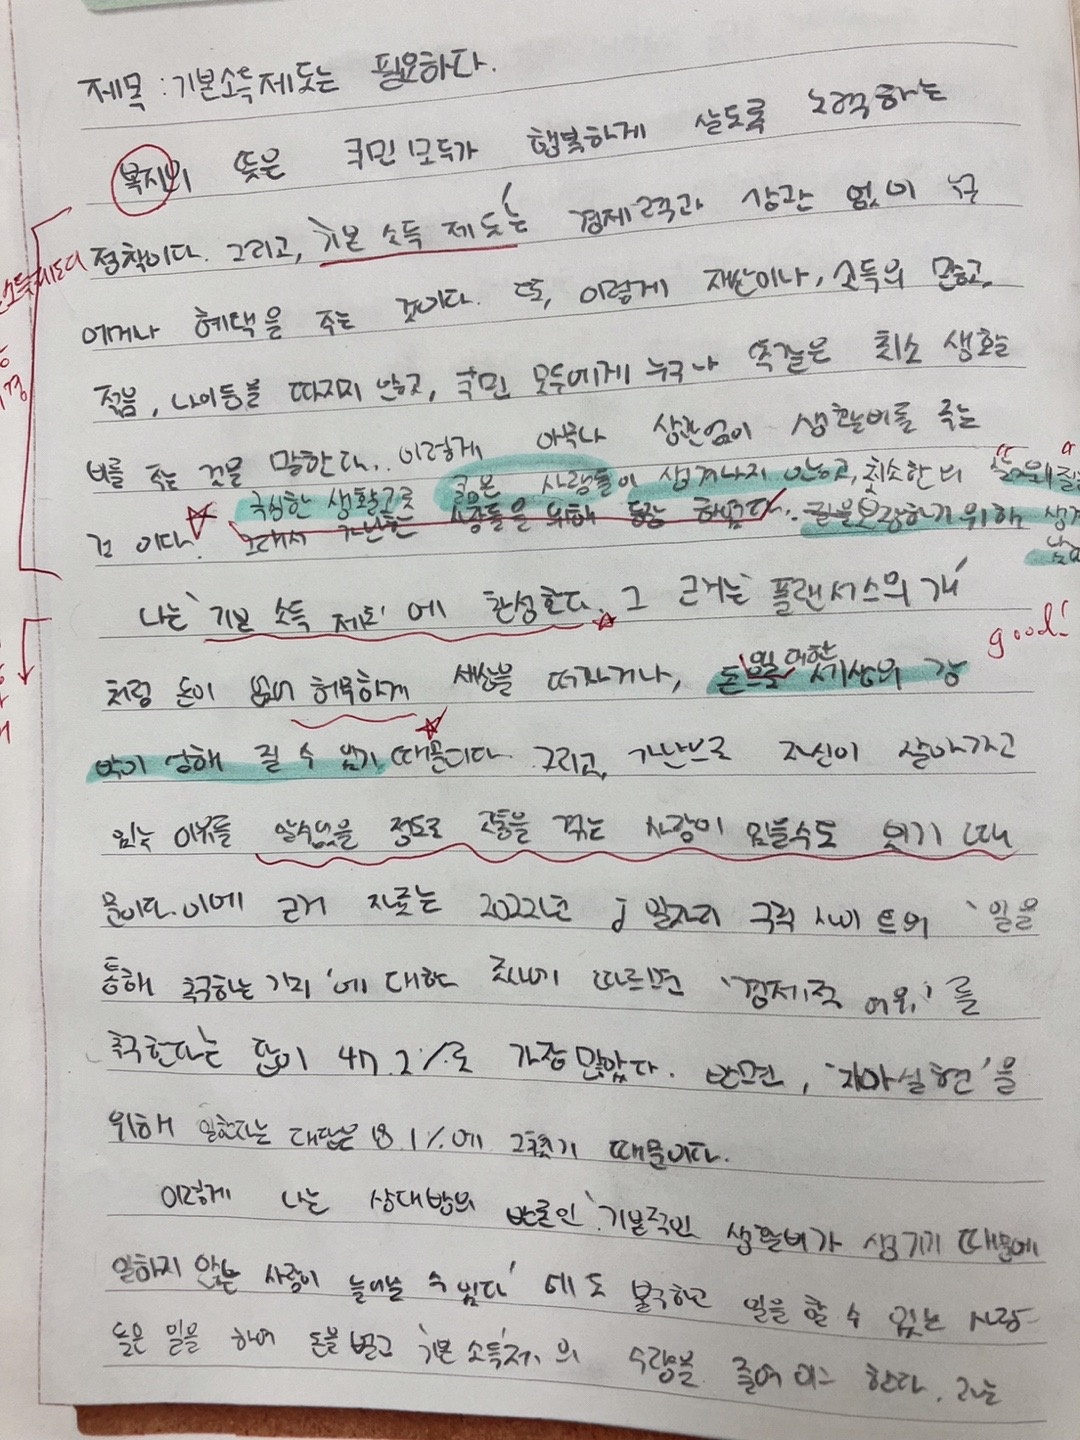 제목 : 기본소득제도는 필요하다.
복지의 뜻은 국민모두가 행복하게 살도록 노력하는
정책이다. 그리고, '기본 소득 제도'는 경제력과 상관 없이 누구
소득제도의
에게나 혜택을 주는 것이다. 또, 이렇게 재산이나, 소득의 많고,
적음, 나이등을 따지지 않고, 국민 모두에게 누구나 똑같은 최소 생활
비를 주는 것을 말한다. 이렇게 아무나 상관없이 생활비를 주는
극심한 생활고로 굶는 사람들이 생겨나지 않고, 최소한의
것 이다. 그래서 가난한 사람들을 위해 등장 하였다. 권을보장하기위해
나는 '기본 소득 제도' 에 찬성한다. 그 근거는 플랜서스의 개
good!
처럼 돈이 없어 허무하게 세상을 떠나거나, 돈으로 세상의
인해 질 수 있기 때문이다. 그리고, 가난으로 자신이 살아가고
있는 이유를 알수없을 정도로 고통을 겪는 사람이 있을수도 있기 때
문이다. 이에 근거 자료는 2022년 j 일자리 구직 사이트의 '일을
통해 추구하는 가치'에 대한 조사에 따르면 '경제적 여유'를
추구한다는 답이 47.2%로 가장 많았다. 반면, '자아실현'을
위해 일한다는 대답은 18.1%에 그쳤기 때문이다.
이렇게 나는 상대방의 반론인 '기본적인 생활비가 생기기 때문에
일하지 않는 사람이 늘어날 수 있다' 에도 불구하고 일을 할 수 있는 사람
들은 일을 하여 돈을 벌고 '기본소득제'의 수량을 줄여 야 한다. 그는